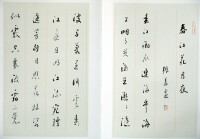 春江花月夜
張若虛
春江潮水連海平海
上明月共潮生灩灩
隨波千萬里何處春
江無月明江流宛轉
遶芳甸月照花林皆
似霰空裏流霜不覺